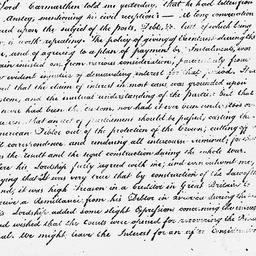 Lord Carmarthen told me yesterday, that he had letter from
Anstey, mentioning his civil reception — A long conversation
ensued upon the subject of the Posts, Debts, &c. Last
is worth repeating. The policy of giving up the interest during the
war, and of agreeing to a plan of payment by Instalments, was
insisted on, from various considerations, particularly from
the evident injustice of demanding interest for that period. I
that the claim of interest in many cases was grounded upon
custom, and the mutual understanding of the Parties: but that
had been the custom, nor had it ever been understood or
that an act of parliament should be passed, casting the
American Debtor out of the protection of the Crown; cutting off
correspondence, and rendering all intercourse criminal, for this
was the result and the legal construction during the whole war.
Here his Lordship fully agreed with me; and even outwent me,
saying that it was very true that by construction of the Law of this
Land, it was high Treason in a creditor in Great Britain to
receive a remittance from his Debtor in America during the
His Lordship added some slight Expression concerning the interest
and wished that the Courts were opened for recovering the Prin
cipal. We might leave the Interest for an after Consideration